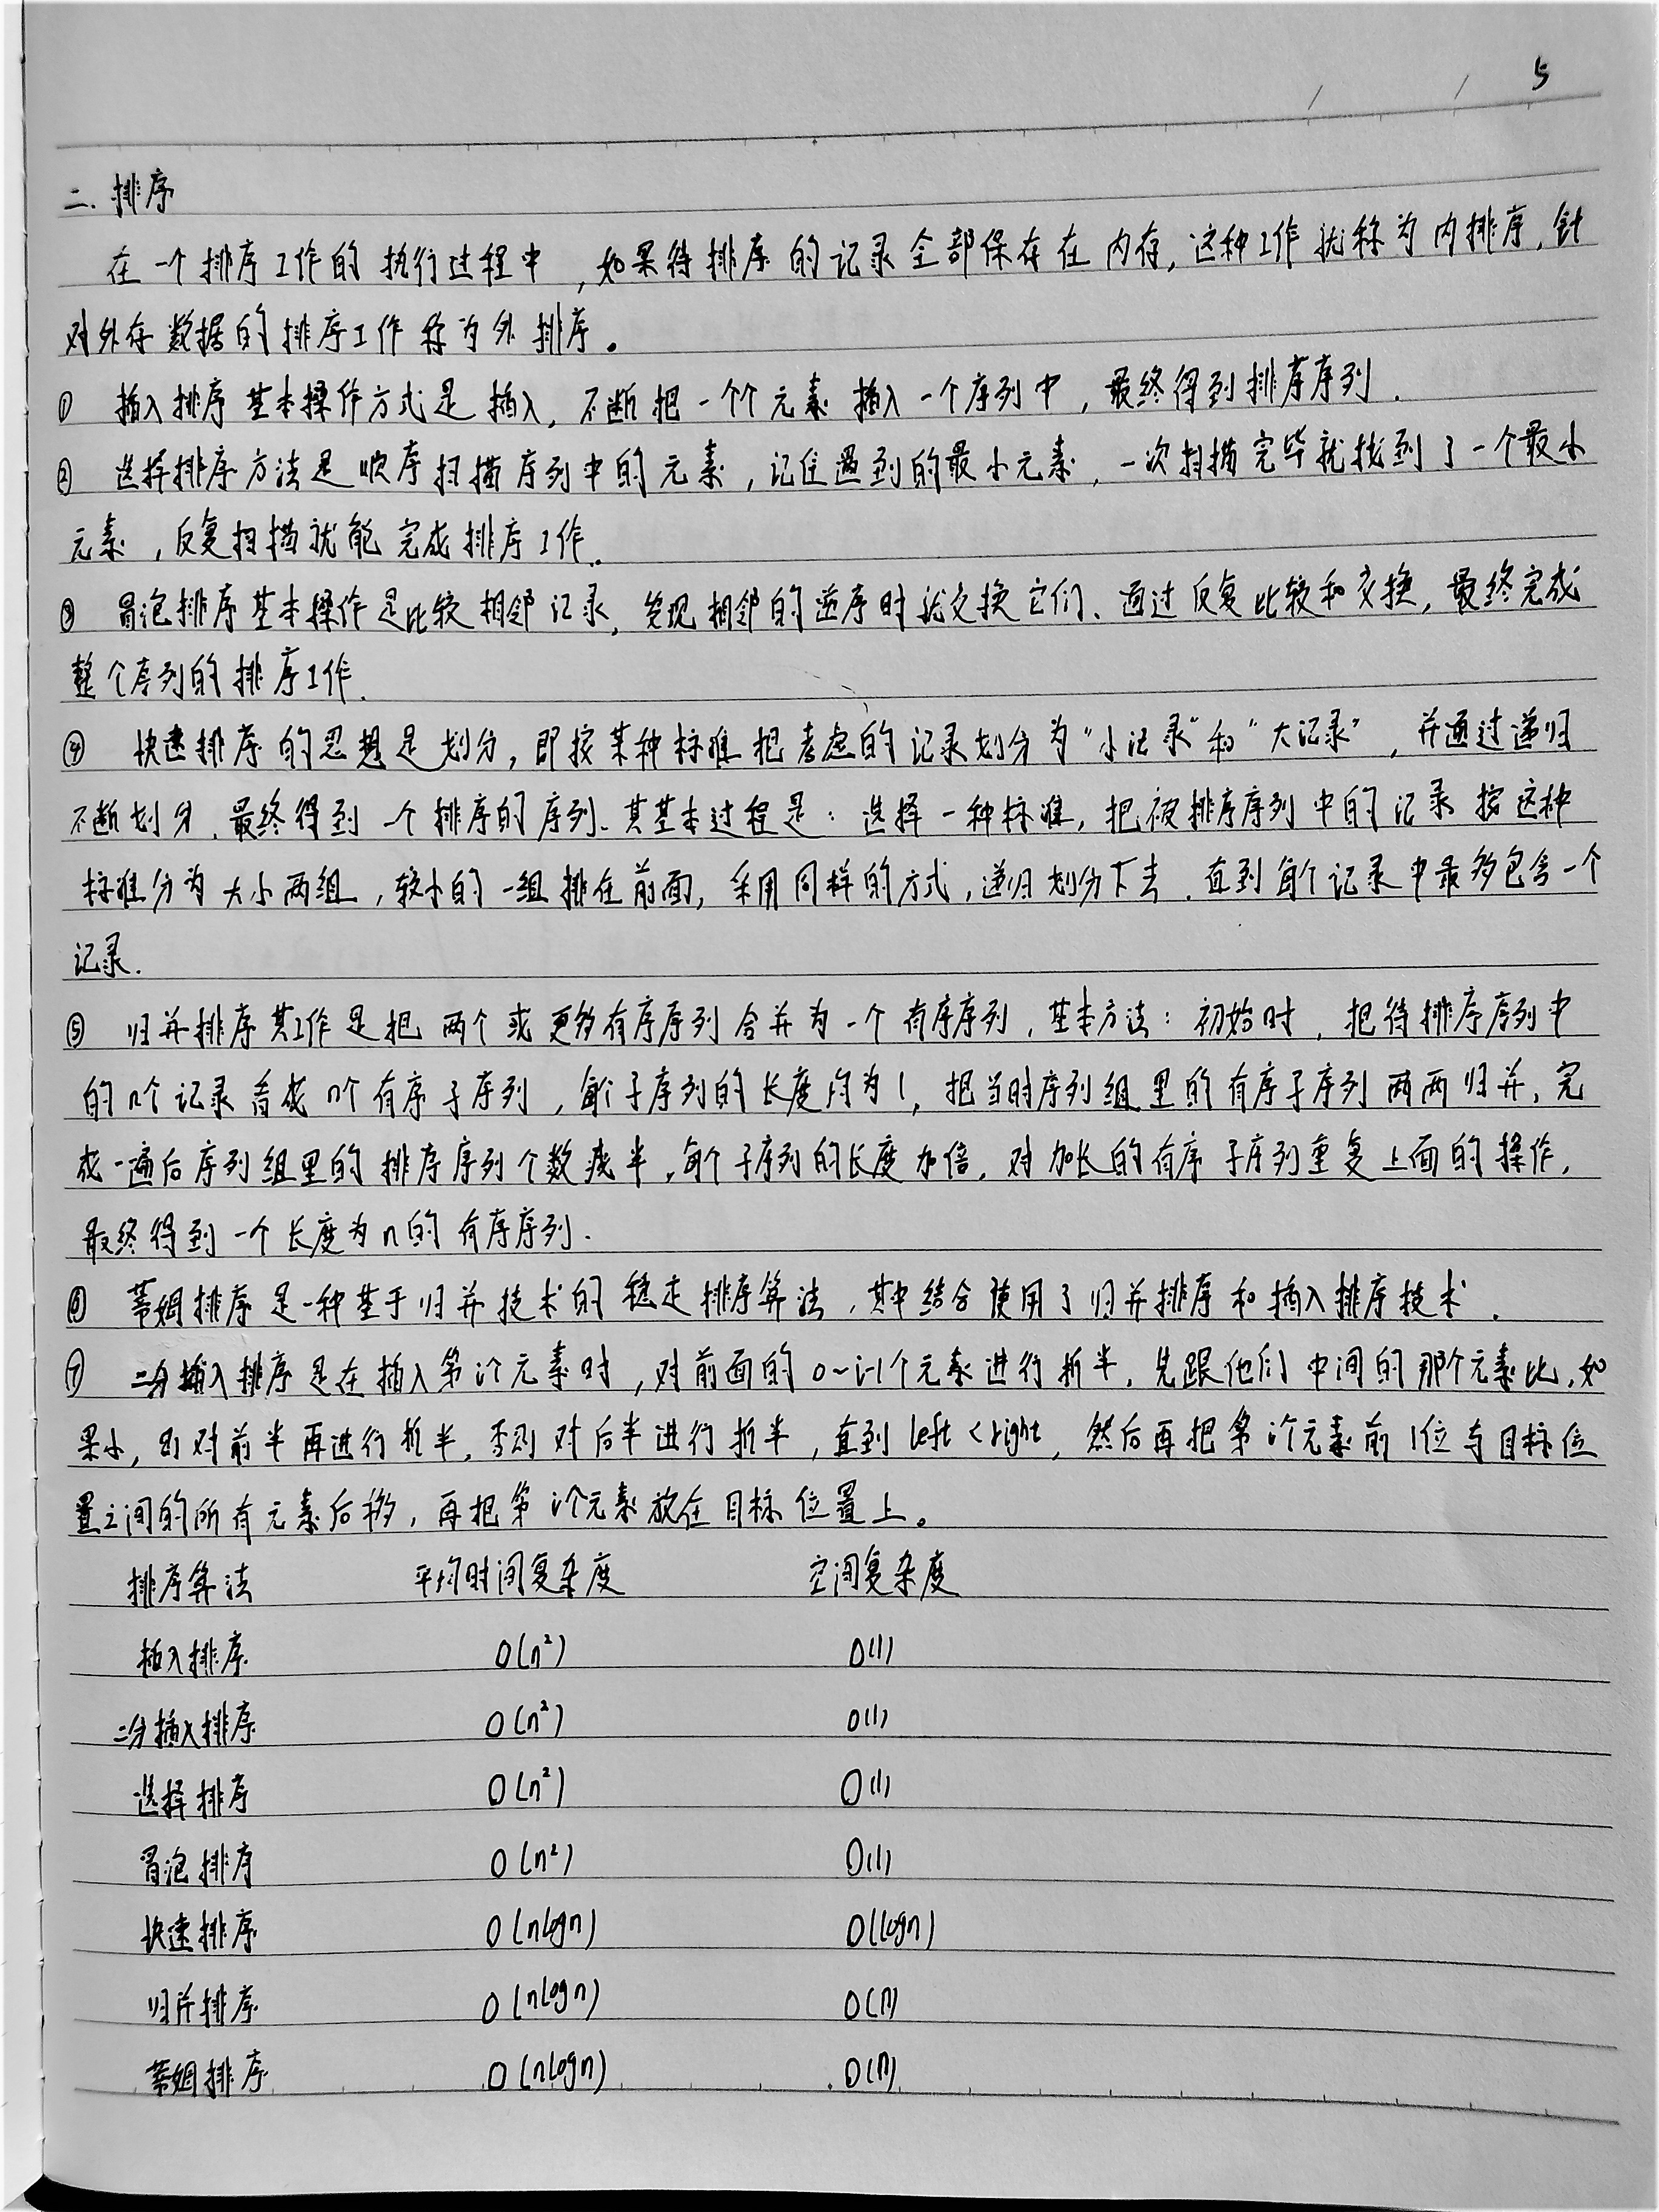 5
二. 排序
在一个排序工作的执行过程中,如果待排序的记录全部保存在内存,这种工作就称为内排序,针
对外存数据的排序工作称为外排序。
① 插入排序基本操作方式是插入,不断把一个个元素插入一个序列中,最终得到排序序列.
② 选择排序方法是顺序扫描序列中的元素,记住遇到的最小元素,一次扫描完毕就找到了一个最小
元素,反复扫描就能完成排序工作.
③ 冒泡排序基本操作是比较相邻记录,发现相邻的逆序时就交换它们、通过反复比较和交换,最终完成
整个序列的排序工作.
④ 快速排序的思想是划分,即按某种标准把考虑的记录划分为“小记录”和“大记录”,并通过递归
不断划分,最终得到一个排序的序列.其基本过程是:选择一种标准,把被排序序列中的记录按这种
标准分为大小两组,较小的一组排在前面,采用同样的方式,递归划分下去.直到每个记录中最多包含一个
记录.
⑤ 归并排序其工作是把两个或更多有序序列合并为一个有序序列,基本方法:初始时,把待排序序列中
的n个记录看成n个有序子序列,每个子序列的长度均为1,把当时序列组里的有序子序列两两归并,完
成一遍后序列组里的排序序列个数减半,每个子序列的长度加倍,对加长的有序子序列重复上面的操作,
最终得到一个长度为n的有序序列.
⑥ 蒂姆排序是一种基于归并技术的稳定排序算法,其中结合使用了归并排序和插入排序技术.
⑦ 二分插入排序是在插入第i个元素时,对前面的0~i-1个元素进行折半,先跟他们中间的那个元素比,如
果小,则对前半再进行折半,否则对后半进行折半,直到left<right,然后再把第i个元素前1位与目标位
置之间的所有元素后移,再把第i个元素放在目标位置上。
排序算法 平均时间复杂度 空间复杂度
插入排序 O(n²) O(1)
二分插入排序 O(n²) O(1)
选择排序 O(n²) O(1)
冒泡排序 O(n²) O(1)
快速排序 O(nlogn) O(logn)
归并排序 O(nlogn) O(n)
蒂姆排序 O(nlogn) O(n)